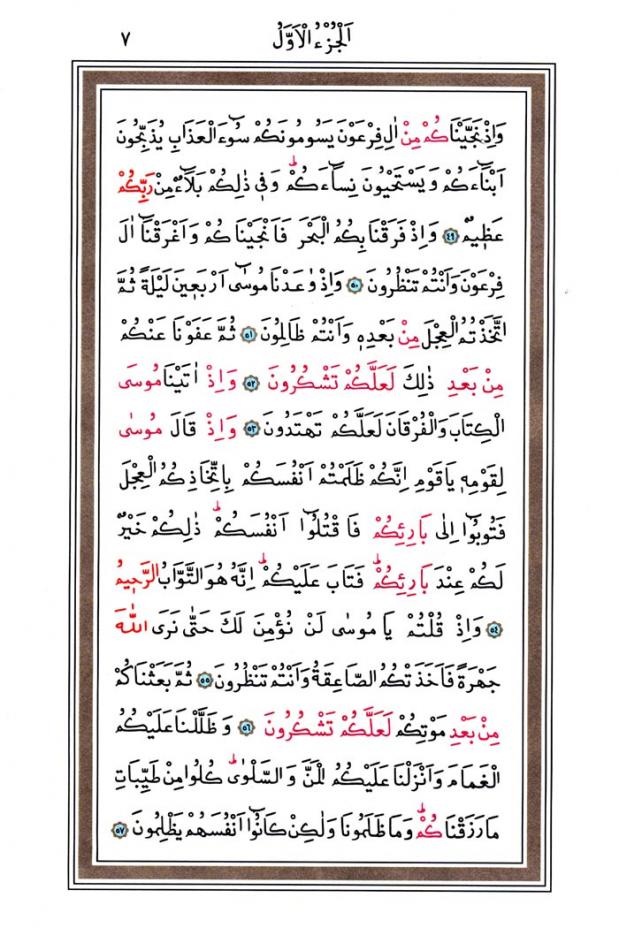 اَلْجُزْءُ الْاَوَّلُ ٧
وَاِذْ نَجَّيْنَاكُمْ مِنْ اٰلِ فِرْعَوْنَ يَسُومُونَكُمْ سُٓوءَ الْعَذَابِ يُذَبِّحُونَ
اَبْنَٓاءَكُمْ وَيَسْتَحْيُونَ نِسَٓاءَكُمْۜ وَفٖي ذٰلِكُمْ بَلَٓاءٌ مِنْ رَبِّكُمْ
عَظٖيمٌ ﴿٤٩﴾ وَاِذْ فَرَقْنَا بِكُمُ الْبَحْرَ فَاَنْجَيْنَاكُمْ وَاَغْرَقْنَٓا اٰلَ
فِرْعَوْنَ وَاَنْتُمْ تَنْظُرُونَ ﴿٥٠﴾ وَاِذْ وٰعَدْنَا مُوسٰٓى اَرْبَعٖينَ لَيْلَةً ثُمَّ
اتَّخَذْتُمُ الْعِجْلَ مِنْ بَعْدِهٖ وَاَنْتُمْ ظَالِمُونَ ﴿٥١﴾ ثُمَّ عَفَوْنَا عَنْكُمْ
مِنْ بَعْدِ ذٰلِكَ لَعَلَّكُمْ تَشْكُرُونَ ﴿٥٢﴾ وَاِذْ اٰتَيْنَا مُوسَى
الْكِتَابَ وَالْفُرْقَانَ لَعَلَّكُمْ تَهْتَدُونَ ﴿٥٣﴾ وَاِذْ قَالَ مُوسٰى
لِقَوْمِهٖ يَاقَوْمِ اِنَّكُمْ ظَلَمْتُمْ اَنْفُسَكُمْ بِاتِّخَاذِكُمُ الْعِجْلَ
فَتُوبُٓوا اِلٰى بَارِئِكُمْ فَاقْتُلُٓوا اَنْفُسَكُمْۜ ذٰلِكُمْ خَيْرٌ
لَكُمْ عِنْدَ بَارِئِكُمْۜ فَتَابَ عَلَيْكُمْۜ اِنَّهُ هُوَ التَّوَّابُ الرَّحٖيمُ
﴿٥٤﴾ وَاِذْ قُلْتُمْ يَا مُوسٰى لَنْ نُؤْمِنَ لَكَ حَتّٰى نَرَى اللّٰهَ
جَهْرَةً فَاَخَذَتْكُمُ الصَّاعِقَةُ وَاَنْتُمْ تَنْظُرُونَ ﴿٥٥﴾ ثُمَّ بَعَثْنَاكُمْ
مِنْ بَعْدِ مَوْتِكُمْ لَعَلَّكُمْ تَشْكُرُونَ ﴿٥٦﴾ وَظَلَّلْنَا عَلَيْكُمُ
الْغَمَامَ وَاَنْزَلْنَا عَلَيْكُمُ الْمَنَّ وَالسَّلْوٰىۜ كُلُوا مِنْ طَيِّبَاتِ
مَا رَزَقْنَاكُمْۜ وَمَا ظَلَمُونَا وَلٰكِنْ كَانُٓوا اَنْفُسَهُمْ يَظْلِمُونَ ﴿٥٧﴾